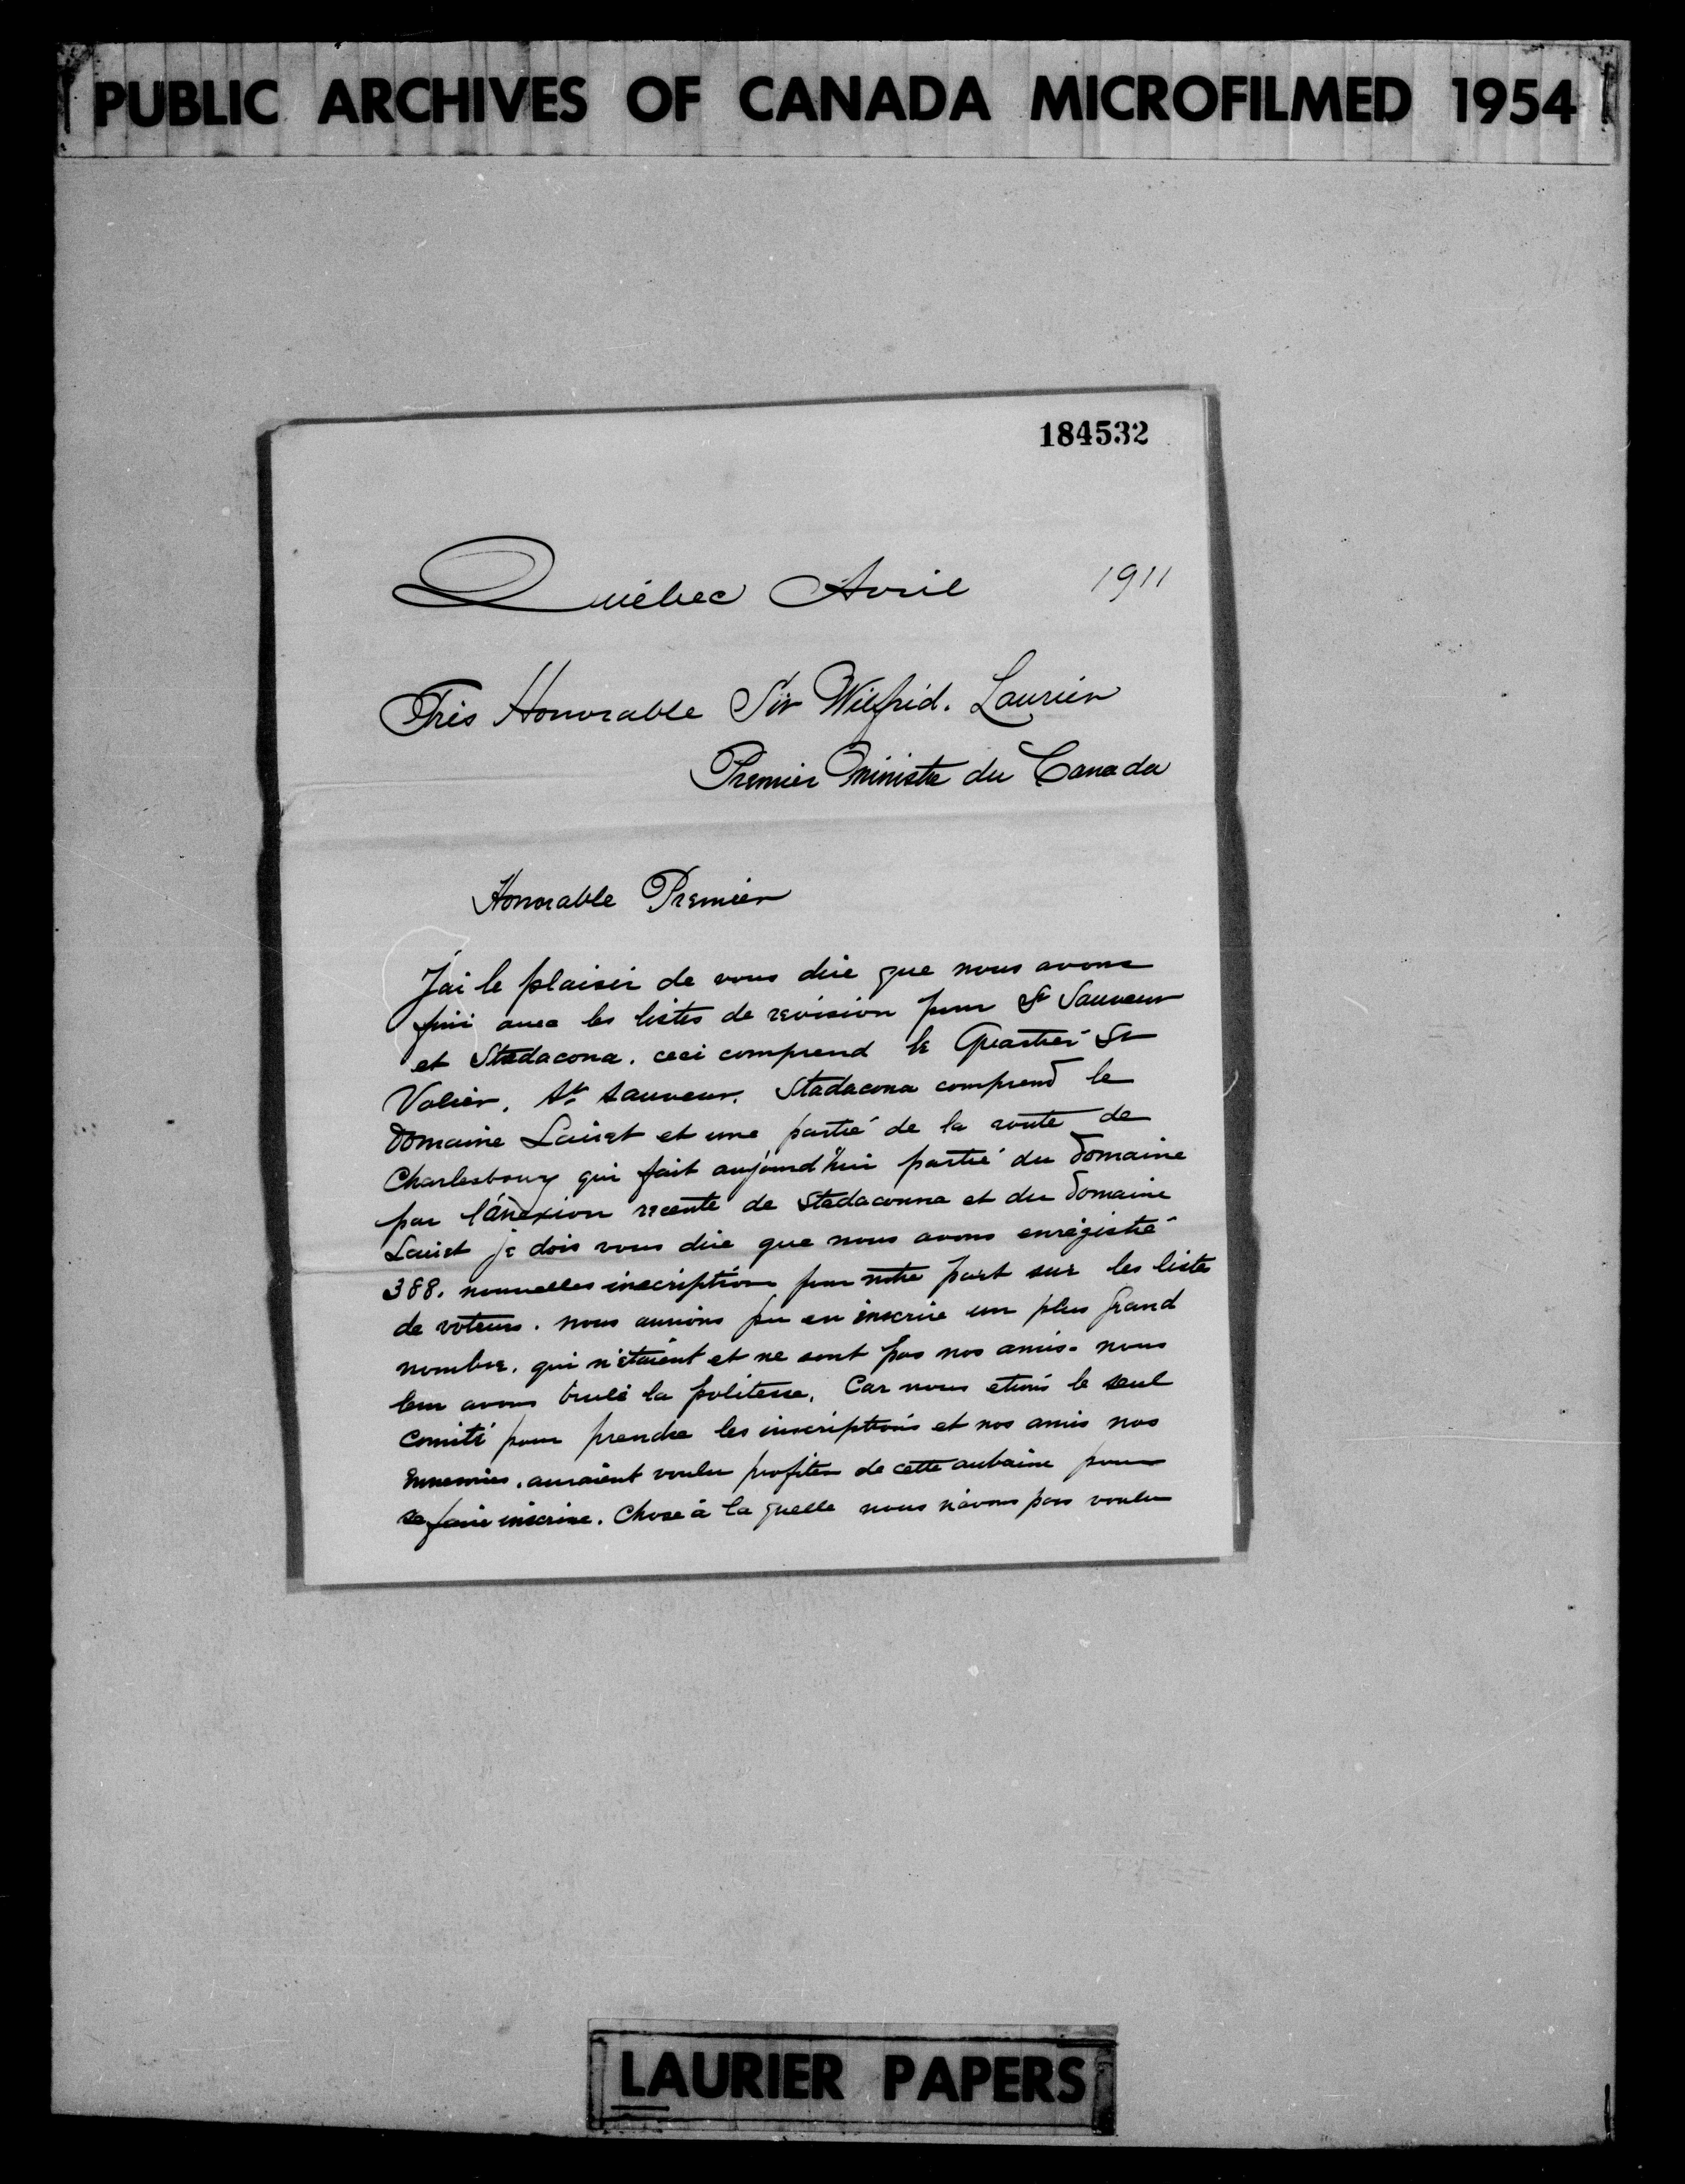 PUBLIC ARCHIVES OF CANADA MICROFILMED 1954
184532
Québec Avril 1911
Très Honorable Sir Wilfrid. Laurier
Premier ministre du Canada
Honorable Premier
J'ai le plaisir de vous dire que nous avons
fini avec les listes de revision pour St Sauveur
et Stadacona. ceci comprend le Quartier St
Valier, St. Sauveur. Stadacona comprend le
Domaine Lairet et une partie de la route de
Charlesbourg qui fait aujourd'hui partie du Domaine
par l'anexion recente de Stadaconna et du Domaine
Lairet je dois vous dire que nous avons enregistré
388. nouvelles inscriptions pour notre part sur les listes
de voteurs. nous aurions pu en inscrire un plus grand
nombre. qui n'étaient et ne sont pas nos amis. nous
leur avons brulé la politesse. Car nous etions le seul
comité pour prendre les inscriptions et nos amis nos
ennemies. auraient voulu profiter de cette aubaine pour
se faire inscrire. Chose à la quelle nous n'avons pas voulu
LAURIER PAPERS